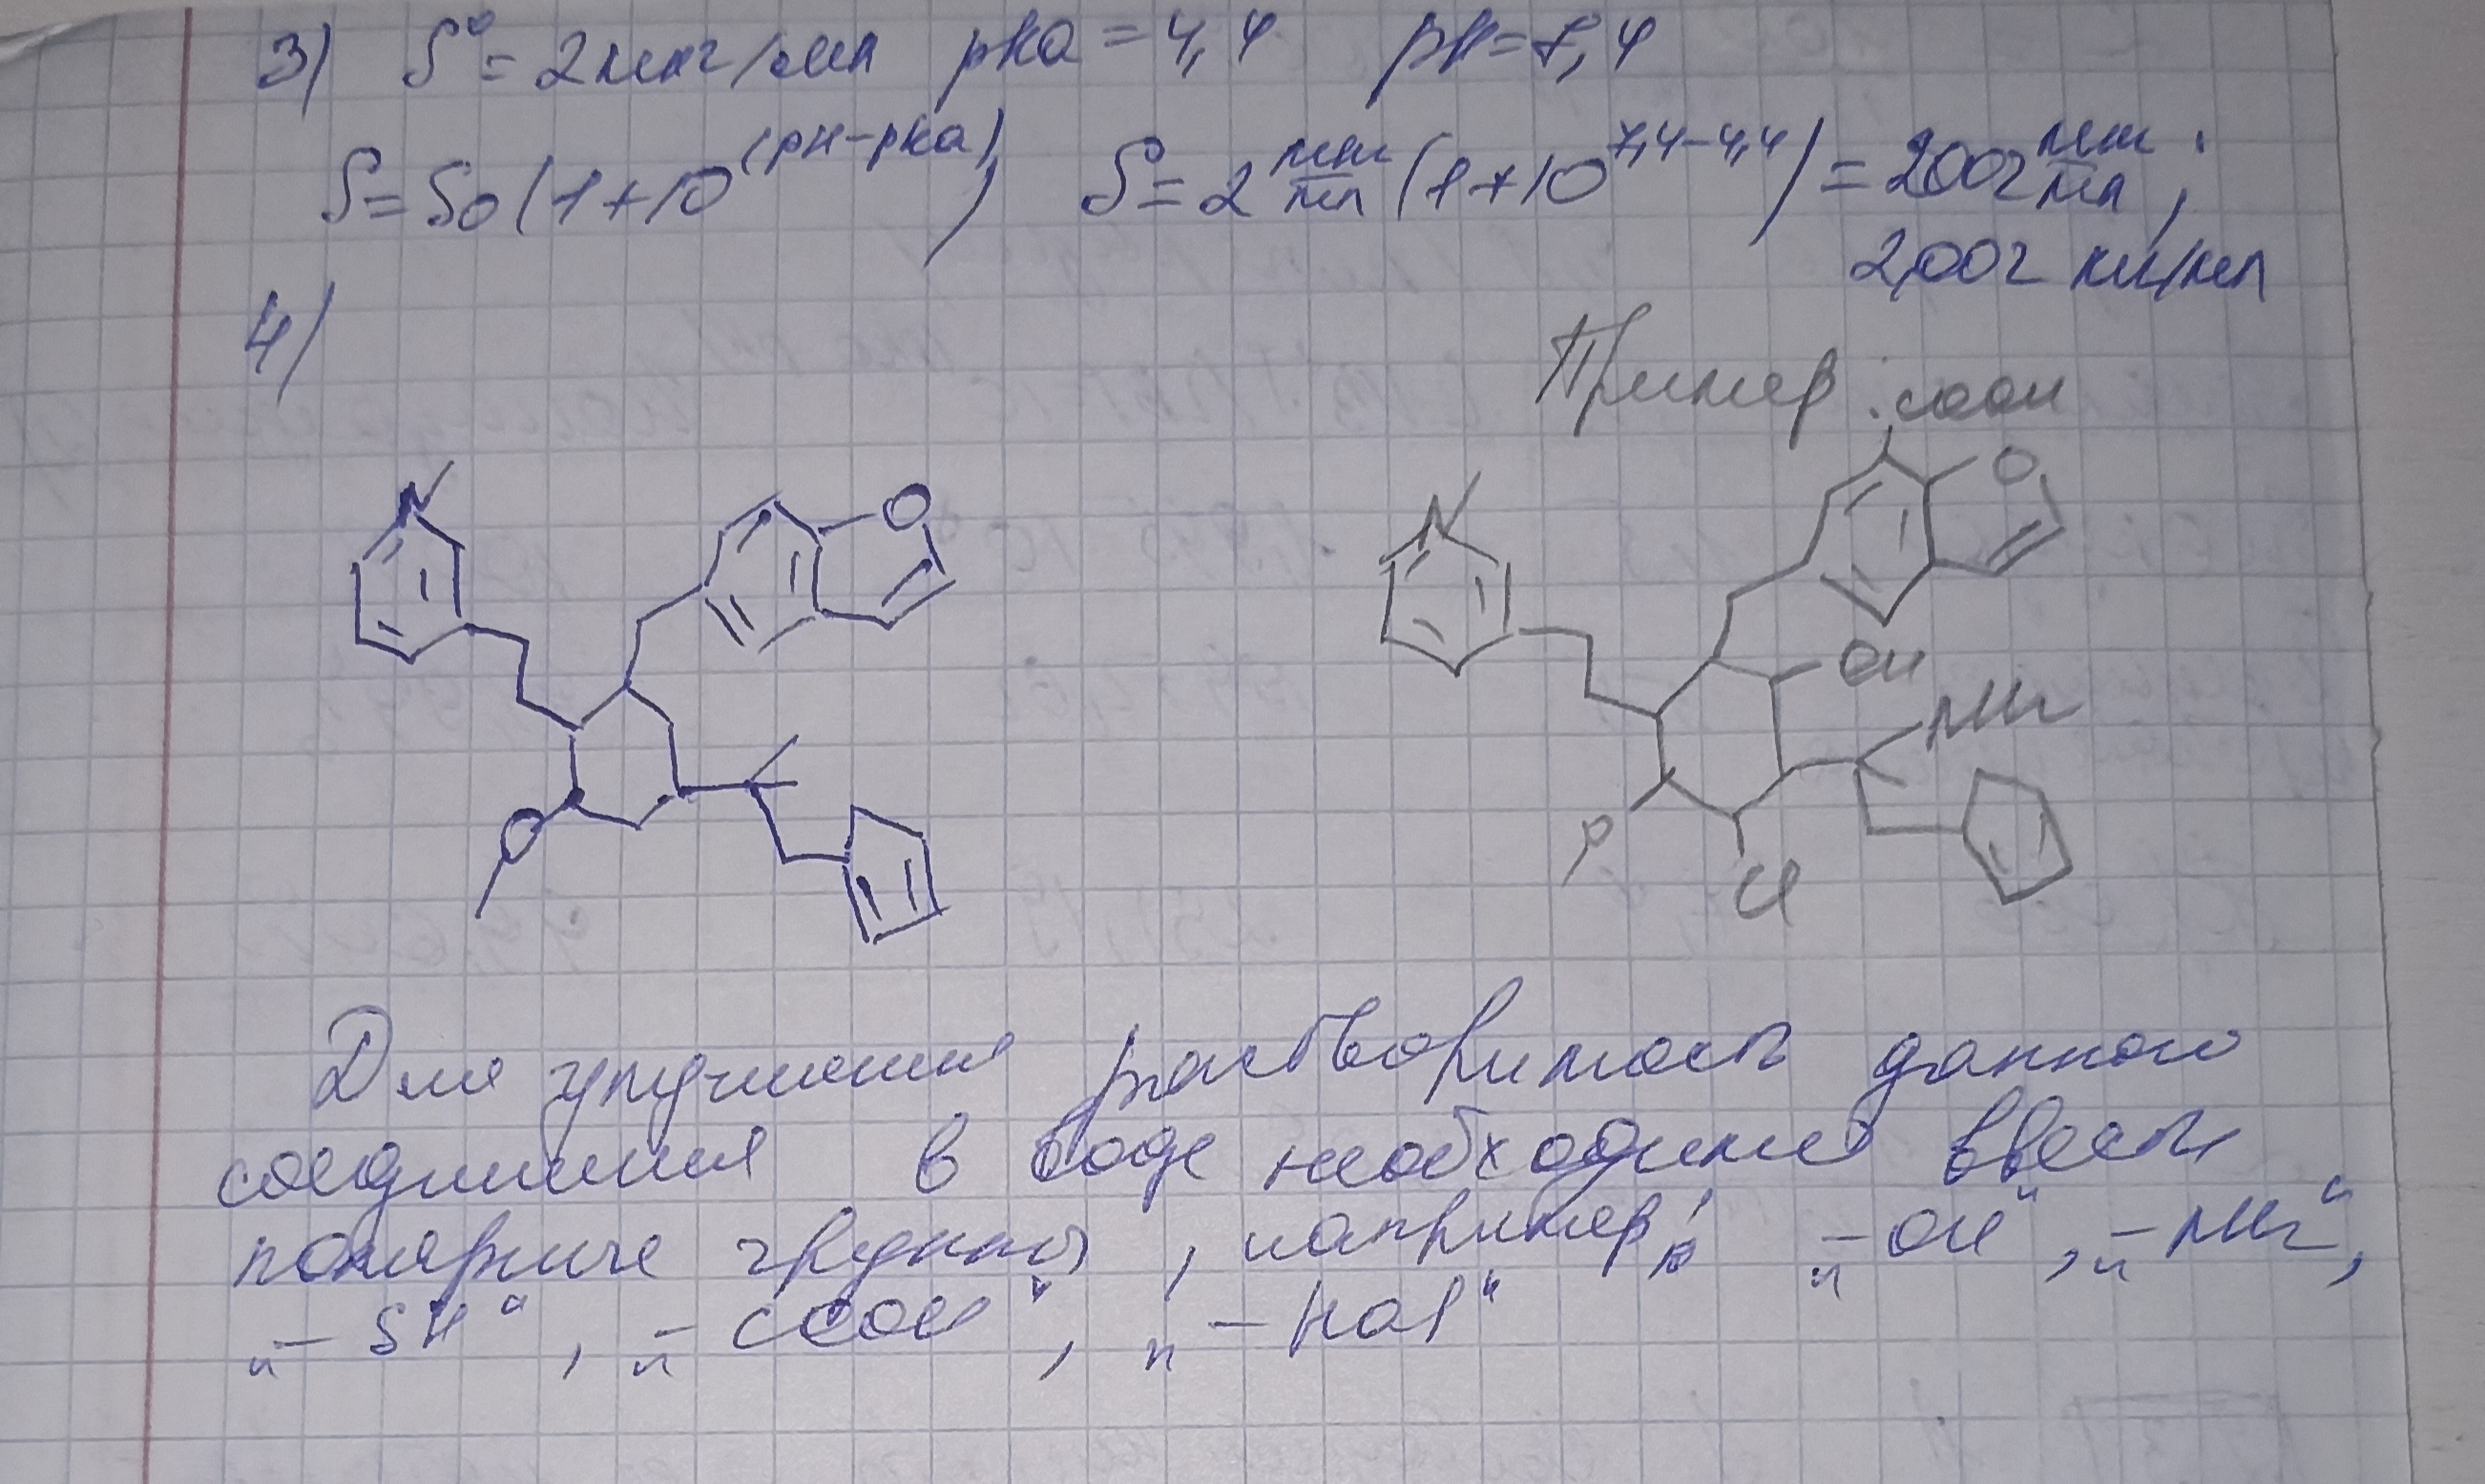 3) S° = 2 мкг/мл pka = 4,4 pH = 7,4
S = S0 (1 + 10^(pH-pka)) S = 2 мкг/мл (1 + 10^7,4-4,4) = 2002 мкг/мл;
2,002 мг/мл
4)
Пример:
COOH
N
O
N
O
OH
NH2
O
O
Cl
Для улучшения растворимость данного
соединения в воде необходимо ввести
полярные группы, например: „-OH“, „-NH2“,
„-SH“, „-COOH“, „-Hal“